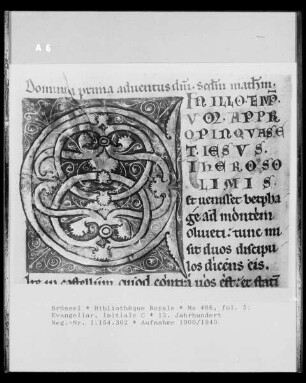 A 6
Dominica prima adventus dñi. Scdm mathm.
IN ILLO TEMP
VM APPR
OPINQVASE
T IESVS
IHEROSO
LIMIS
et venisset betpha
ge ad montem
oliveti: tunc mi
sit duos discipu
los dicens eis.
Ite in castellum quod contra vos est: et statim
Brüssel * Bibliothèque Royale * Ms 466, fol. 2:
Evangeliar. Initiale C * 12. Jahrhundert
Neg.-Nr. 1.154.302 * Aufnahme 1900/1940